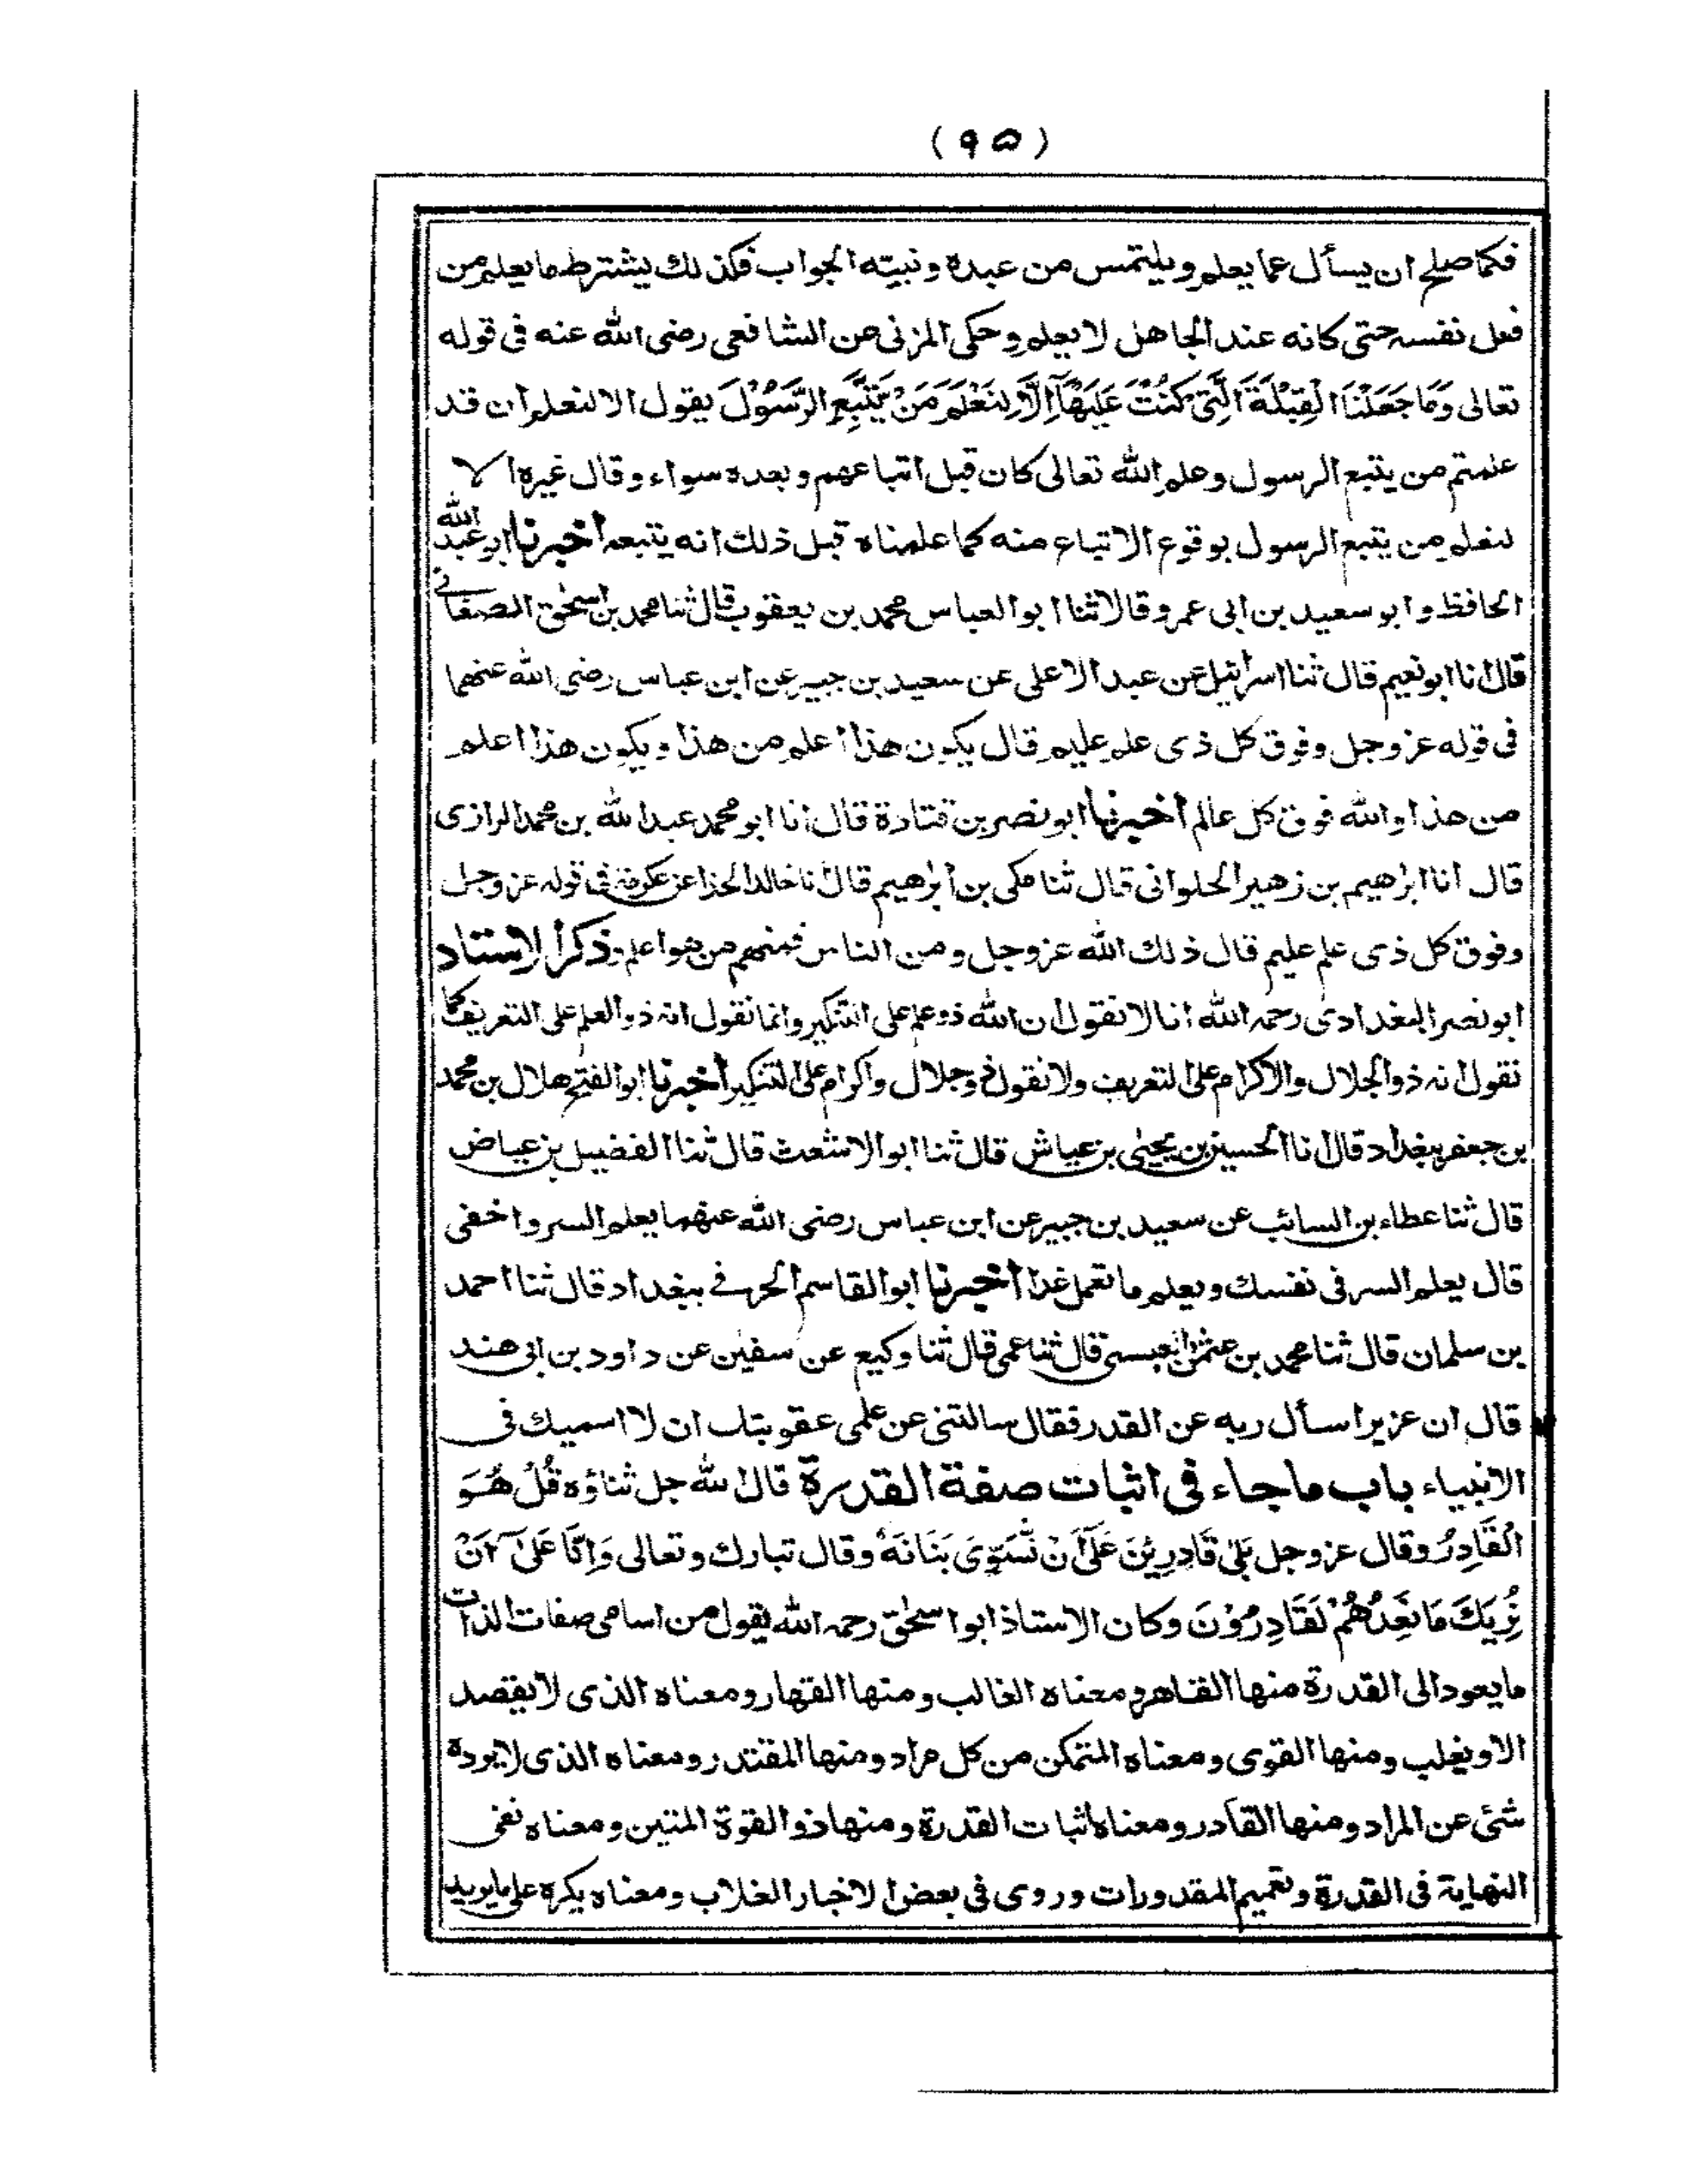 (٩٥)
فكما صلح ان يسأل عما يعلم ويلتمس من عبده ونبيته الجواب فكذلك يشترط ما يعلم من
فعل نفسه حتى كانه عند الجاهل لا يعلم وحكى المزنى عن الشافعى رضى الله عنه فى قوله
تعالى وَمَا جَعَلْنَا الْقِبْلَةَ الَّتِىْ كُنْتَ عَلَيْهَآ اِلَّا لِنَعْلَمَ مَنْ يَّتَّبِعُ الرَّسُوْلَ يقول الا لنعلم ان قد
علمتم من يتبع الرسول وعلم الله تعالى كان قبل اتباعهم وبعده سواء وقال غيره الا
لنعلم من يتبع الرسول بوقوع الاتباع منه كما علمناه قبل ذلك انه يتبعه اخبرنا ابو عبد الله
الحافظ وابو سعيد بن ابى عمرو قالا ثنا ابو العباس محمد بن يعقوب قال ثنا محمد بن اسحٰق الصغانى
قال انا ابو نعيم قال ثنا اسرائيل عن عبد الاعلى عن سعيد بن جبير عن ابن عباس رضى الله عنهما
فى قوله عز وجل وفوق كل ذى علم عليم قال يكون هذا اعلم من هذا ويكون هذا اعلم
من هذا والله فوق كل عالم اخبرنا ابو نصر بن قتادة قال انا ابو محمد عبد الله بن محمد الرازى
قال انا ابرٰهيم بن زهير الحلوانى قال ثنا مكى بن ابرٰهيم قال انا خالد الحذا عن عكرمة فى قوله عز وجل
وفوق كل ذى علم عليم قال ذلك الله عز وجل ومن الناس فمنهم من هو اعلم وذكر الاستاد
ابو نصر البغدادى رحمه الله انا لا نقول ان الله ذو علم على التنكير وانما نقول انه ذو العلم على التعريف كما
نقول انه ذو الجلال والاكرام على التعريف ولا نقول ذو جلال واكرام على التنكير اخبرنا ابو الفتح هلال بن محمد
بن جعفر ببغداد قال انا الحسين بن يحيٰى بن عياش قال ثنا ابو الاشعث قال ثنا الفضيل بن عياض
قال ثنا عطاء بن السائب عن سعيد بن جبير عن ابن عباس رضى الله عنهما يعلم السر واخفى
قال يعلم السر فى نفسك ويعلم ما تعمل غدا اخبرنا ابو القاسم الحرفى ببغداد قال ثنا احمد
بن سلمان قال ثنا محمد بن عثمٰن العبسى قال ثنا عمى قال ثنا وكيع عن سفيٰن عن داود بن ابى هند
قال ان عزيرا سأل ربه عن القدر فقال سالتنى عن علمى عقوبتك ان لا اسميك فى
الانبياء باب ما جاء فى اثبات صفة القدرة قال الله جل ثناؤه قُلْ هُوَ
الْقَادِرُ وقال عز وجل بَلٰى قَادِرِيْنَ عَلٰٓى اَنْ نُّسَوِّىَ بَنَانَهٗ وقال تبارك وتعالى وَاِنَّا عَلٰٓى اَنْ
نُّرِيَكَ مَا نَعِدُهُمْ لَقَادِرُوْنَ وكان الاستاذ ابو اسحٰق رحمه الله يقول من اسامى صفات الذات
ما يعود الى القدرة منها القاهر ومعناه الغالب ومنها القهار ومعناه الذى لا يقصد
الا ويغلب ومنها القوى ومعناه المتمكن من كل مراد ومنها المقتدر ومعناه الذى لا يرده
شئ عن المراد ومنها القادر ومعناه اثبات القدرة ومنها ذو القوة المتين ومعناه نفى
النهاية فى القدرة وتعميم المقدورات وروى فى بعض الاخبار الغلاب ومعناه يكره على ما يريد